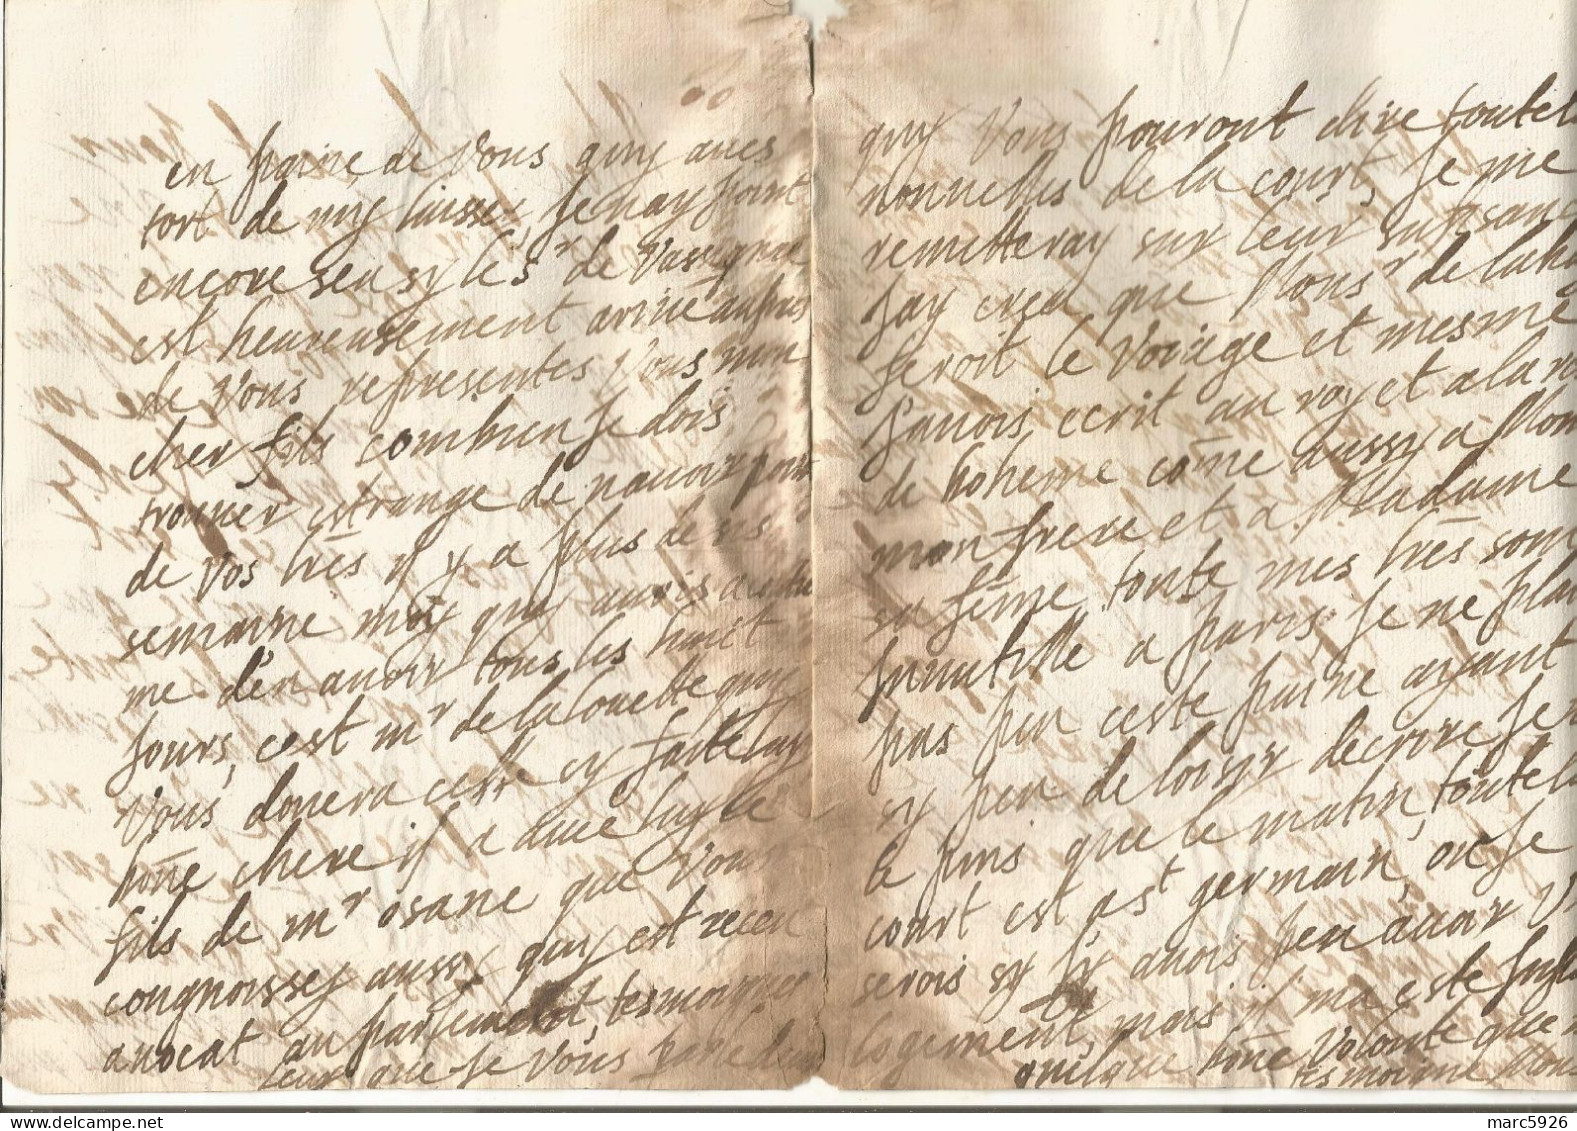 en paine de Vous quy aues
tort de my laisser, Je nay point
encore seu sy le sr de Vassignac
est heureusement ariué aupres
de Vous representes Vous mon
cher fils combien Je dois
trouuer estrange de nauoir point
de Vos lrēs il y a plus de
semaine moy quy auois
me den auoir tous les huict
Jours, cest mr de la louette quy
Vous donera ceste cy faite luy
bōne chere il a auec luy le
fils de mr osane que Vous
congnoissey aussy quy est receu
auocat au parlement, tesmoigner
leur que Je Vous
quy Vous pouront dire toutes
nouuelles de la court, Je me
remetteray sur leur
Jay creu que Monsr de la
feroit le Voiage et mesme
J'auois ecrit au roy et a la
de boheme cōme aussy a
mon frere et a Madame
sa fēme toute mes lrēs sont
Inutille a paris, Je ne plai
pas peu ceste paine ayant
sy peu de loisir decrire Je
le puis que le matin, toute la
court est a st germain, ou Je
serois sy Jy auois peu auoir
logement, mais il ma este
quelque bōne Volonté que
tesmoigne
marc5926